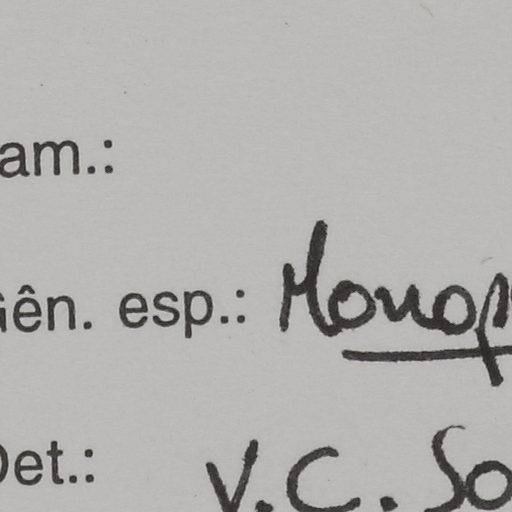 am.:
ên. esp.: Monop
Det.: V.C. So